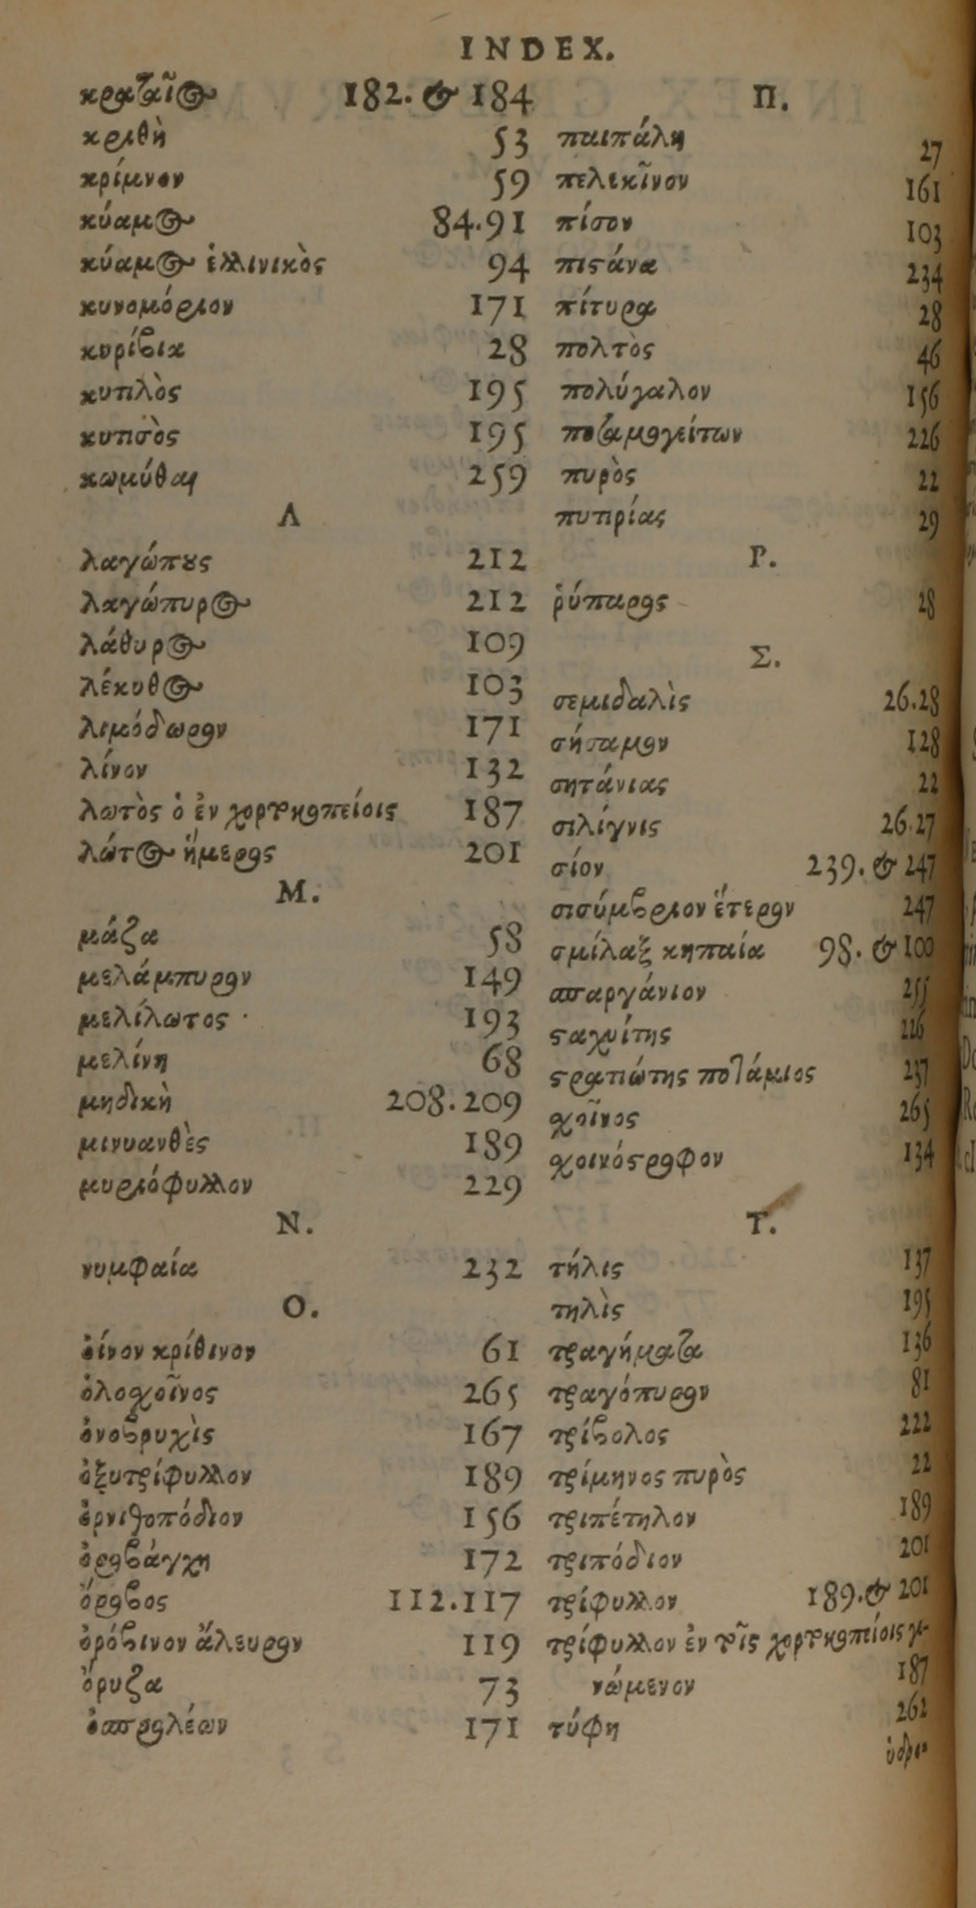 INDEX.
κραταῖος 182. & 184
κριθὴ 53
κρίμνον 59
κύαμος 84.91
κύαμος ἑλλινικὸς 94
κυνομόριον 171
κυρίβια 28
κυτιλὸς 195
κυτισὸς 195
κωμύθαι 259
Λ
λαγώπους 212
λαγώπυρος 212
λάθυρος 109
λέκυθος 103
λιμόδωρον 171
λίνον 132
λωτὸς ὁ ἐν χορτοκηπείοις 187
λώτος ἥμερος 201
Μ.
μάζα 58
μελάμπυρον 149
μελίλωτος 193
μελίνη 68
μηδικὴ 208.209
μινυανθὲς 189
μυριόφυλλον 229
Ν.
νυμφαία 232
Ο.
οἶνον κρίθινον 61
ὁλοσχοῖνος 265
ὀνοβρυχὶς 167
ὀξυτρίφυλλον 189
ὀρνιθοπόδιον 156
ὀροβάγχη 172
ὄροβος 112.117
ὀρόβινον ἄλευρον 119
ὄρυζα 73
ὀσπρολέων 171
Π.
παιπάλη 27
πελεκῖνον 161
πίσον 103
πιςάνα 234
πίτυρα 28
πολτὸς 46
πολύγαλον 156
ποταμογείτων 226
πυρὸς 22
πυτιρίας 29
Ρ.
ῥύπαρος 28
Σ.
σεμιδαλὶς 26.28
σήσαμον 128
σητάνιας 22
σιλίγνις 26.27
σίον 239. & 247
σισύμβριον ἕτερον 247
σμίλαξ κηπαία 98. & 100
σπαργάνιον 255
ςαχυίτης 226
ςρατιώτης ποτάμιος 237
σχοῖνος 265
σχοινόςροφον 134
Τ.
τήλις 137
τηλὶς 195
τραγήματα 136
τραγόπυρον 81
τρίβολος 222
τρίμηνος πυρὸς 22
τριπέτηλον 189
τριπόδιον 201
τρίφυλλον 189. & 201
τρίφυλλον ἐν τοῖς χορτοκηπείοις γι-
νώμενον 187
τύφη 262